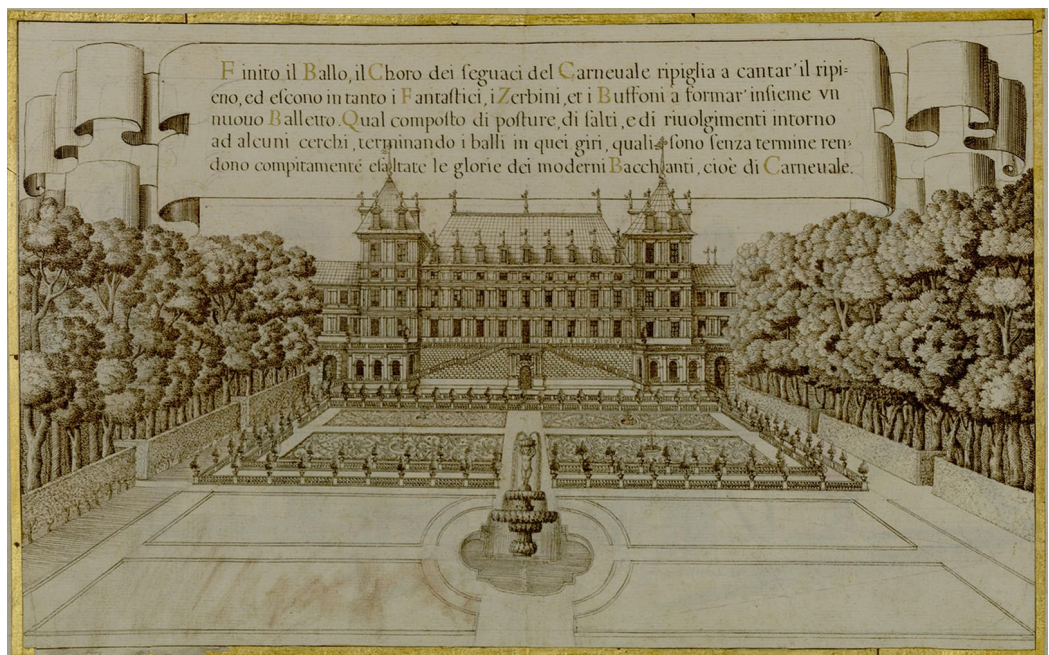 Finito il Ballo, il Choro dei ſeguaci del Carneuale ripiglia a cantar' il ripi=
eno, ed eſcono in tanto i Fantaſtici, i Zerbini, et i Buffoni a formar' inſieme vn
nuouo Balletto. Qual compoſto di poſture, di ſalti, e di riuolgimenti intorno
ad alcuni cerchi, terminando i balli in quei giri, quali ſono ſenza termine ren=
dono compitamente eſaltate le glorie dei moderni Bacchanti, cioè di Carneuale.